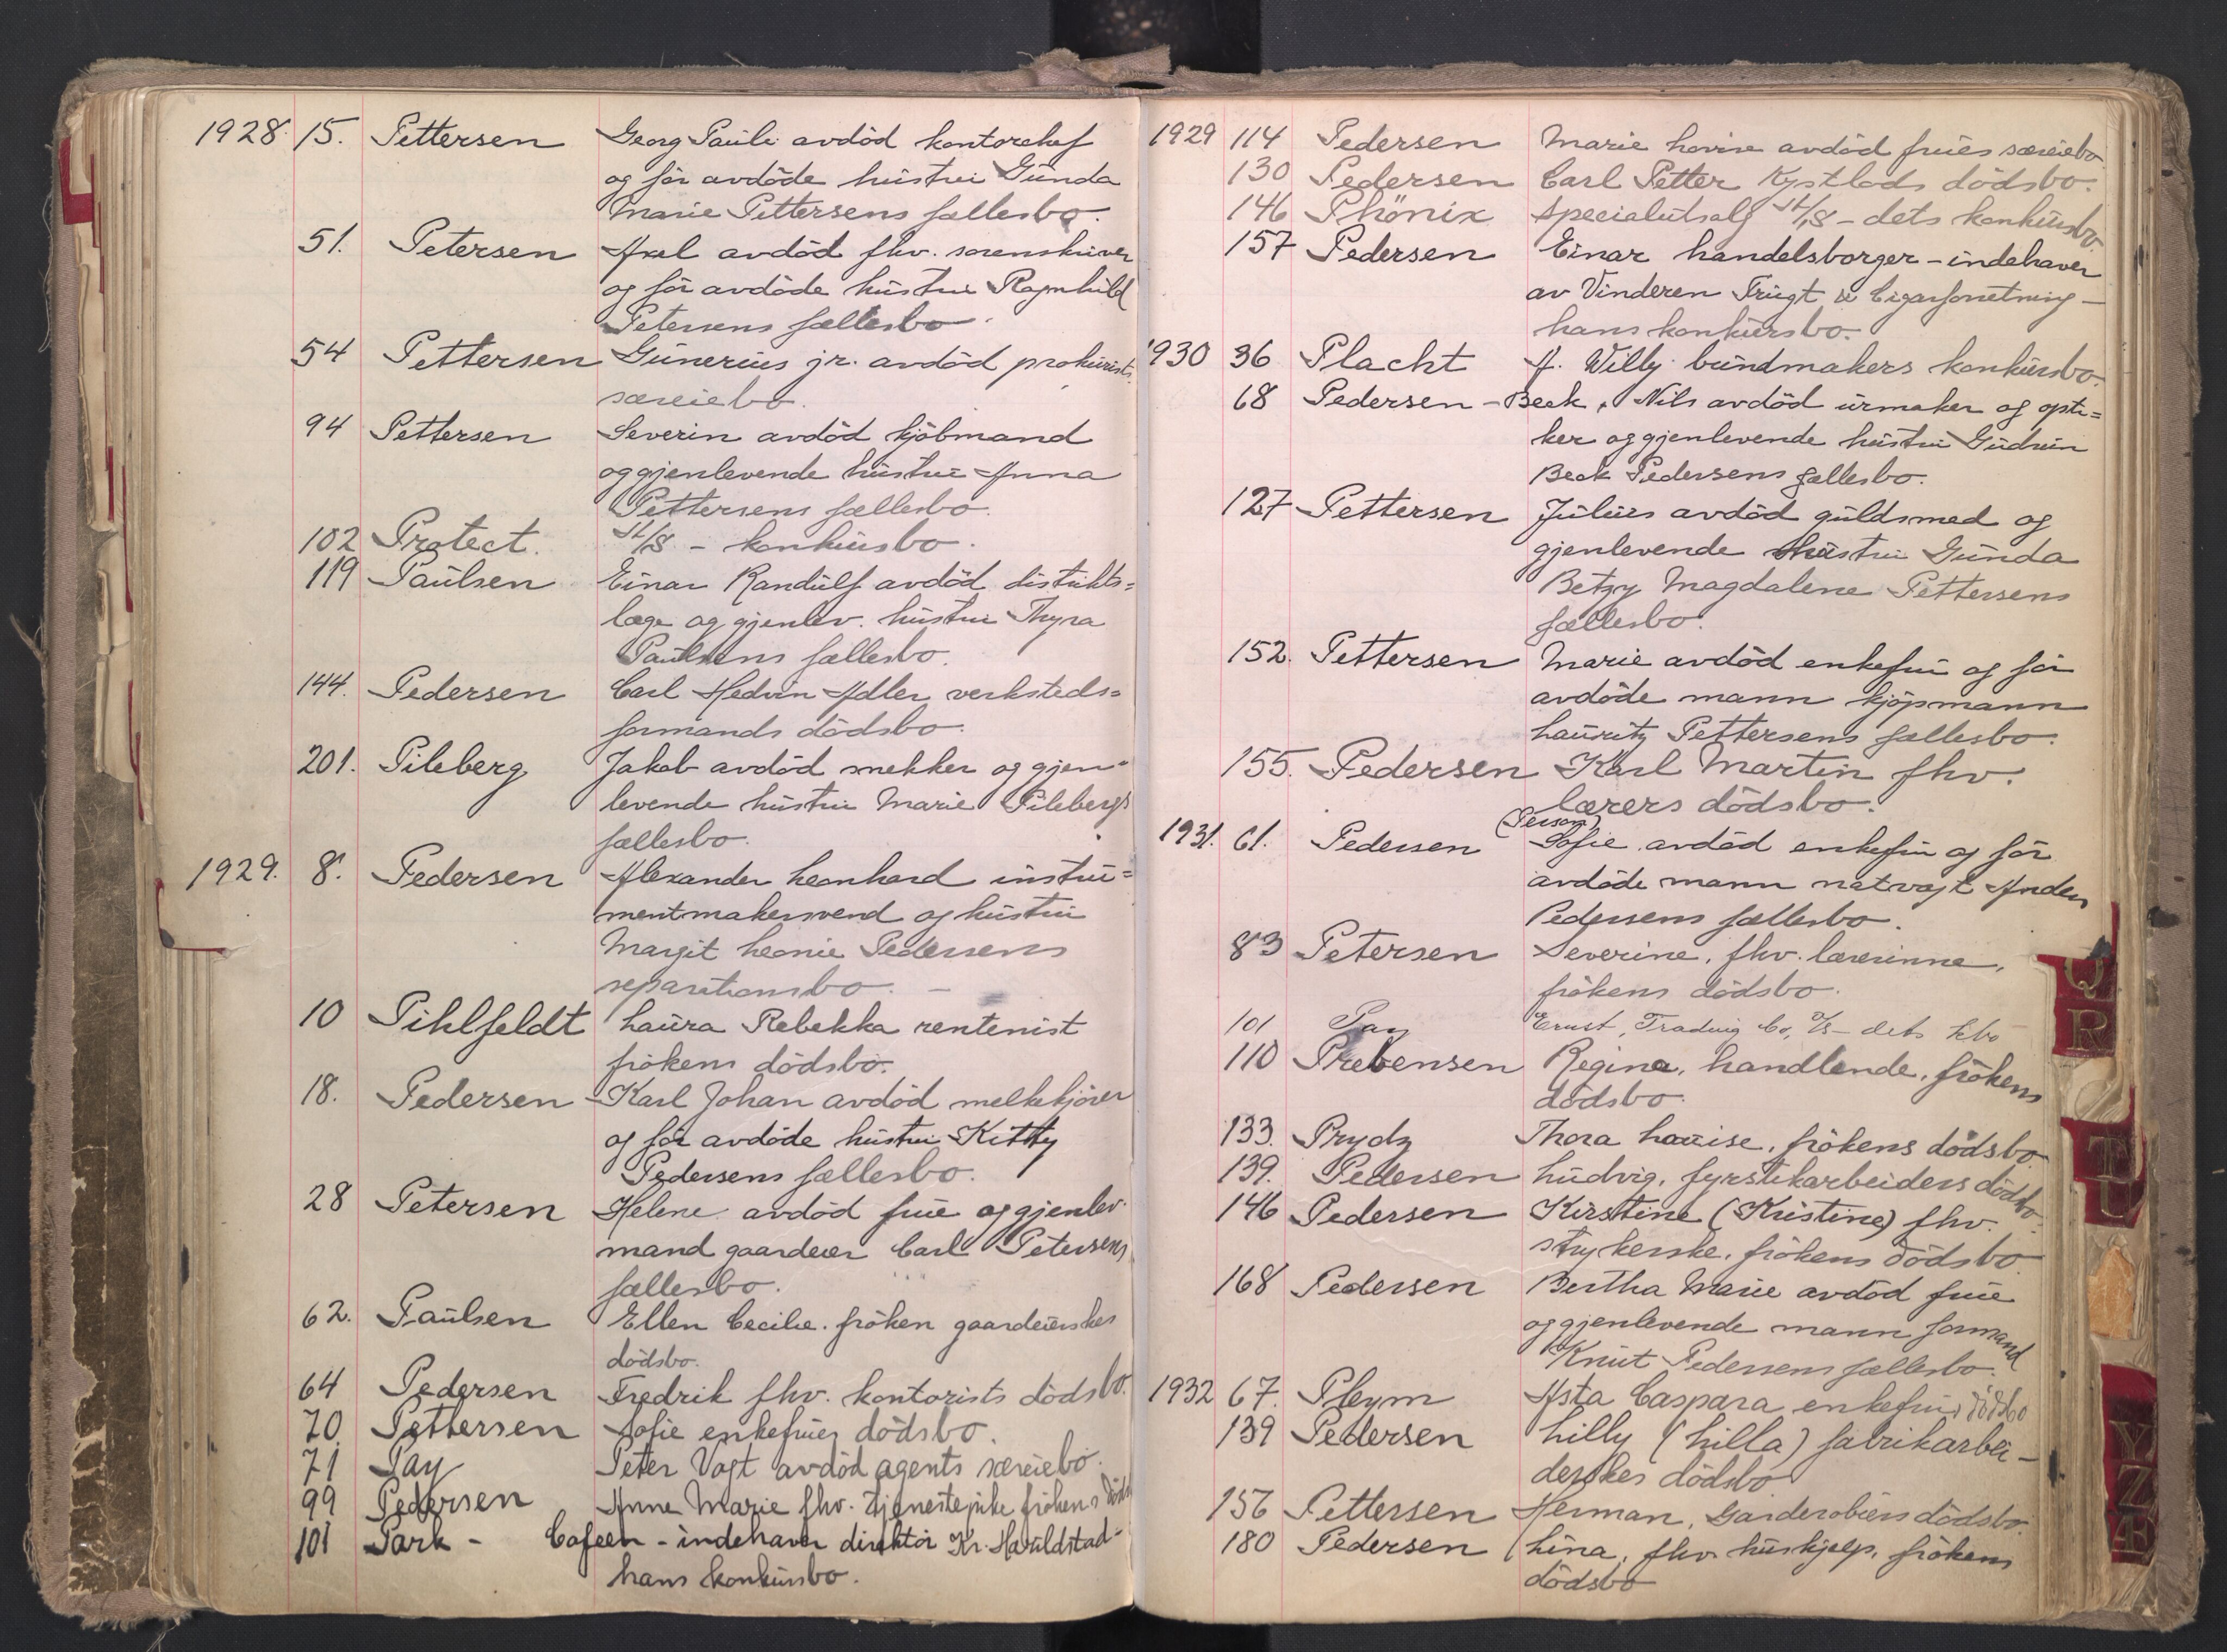 1928. 15. Pettersen Georg Pauli avdöd kontorchef
og för avdöde hustru Gunda
Marie Pettersens fællesbo.
51. Petersen Axel avdöd fhv. sorenskriver
og för avdöde hustru Ragnhild
Petersens fællesbo.
54 Pettersen Gunerius jr. avdöd prokurists
særeiebo.
94 Pettersen Severin avdöd kjöbmand
og gjenlevende hustru Anna
Pettersens fællesbo.
102 Protect. A/S - konkursbo.
119 Paulsen Einar Randulf avdöd distrikts=
læge og gjenlev. hustru Thyra
Paulsens fællesbo.
144. Pedersen Carl Hedvin Adler verksteds=
formands dödsbo.
201. Pileberg Jakob avdöd snekker og gjen=
levende hustru Marie Pilebergs
fællesbo.
1929. 8. Pedersen Alexander Leonhard instru=
mentmakersvend og hustru
Margit Leonie Pedersens
separationsbo. -
10 Pihlfeldt Laura Rebekka rentenist
frökens dödsbo.
18. Pedersen Karl Johan avdöd melkekjörer
og för avdöde hustru Kitty
Pedersens fællesbo.
28 Petersen Helene avdöd frue og gjenlev.
mand gaardeier Carl Petersens
fællesbo.
62. Paulsen Ellen Cecilie fröken gaardeierskes
dödsbo.
64 Pedersen Fredrik fhv. kontorists dödsbo.
70 Pettersen Sofie enkefrues dödsbo.
71 Pay Peter Vogt avdöd agents særeiebo.
99 Pedersen Anne Marie fhv. tjenestepike frökens döds
101 Park - Cafeen - indehaver direktör Kr. Haraldstad-
hans konkursbo.
1929 114 Pedersen Marie Lovise avdöd frues særeiebo.
130 Pedersen Carl Petter Kystlods dödsbo.
146 Phönix Specialutsalg A/S - dets konkursbo.
157 Pedersen Einar handelsborger - indehaver
av Vinderen Frugt & Cigarforretning -
hans konkursbo.
1930 36 Placht A. Willy buntmakers konkursbo.
68 Pedersen - Beck, Nils avdöd urmaker og opti=
ker og gjenlevende hustru Gudrun
Beck Pedersens fællesbo.
127 Pettersen Julius avdöd guldsmed og
gjenlevende hustru Gunda
Betzy Magdalene Pettersens
fællesbo.
152. Pettersen Marie avdöd enkefru og för
avdöde mann kjöpmann
Lauritz Pettersens fællesbo.
155. Pedersen Karl Martin fhv.
lærers dödsbo.
(Person)
1931. 61. Pedersen Sofie avdöd enkefru og för
avdöde mann natvagt Anders
Pedersens fællesbo.
83 Petersen Severine, fhv. lærerinne,
frökens dödsbo.
101 Pay Ernst, Trading Co, A/S - dets kbo
110 Prebensen Regine, handlende, frökens
dödsbo.
133. Prydz Thora Louise, frökens dödsbo.
139. Pedersen Ludvig, fyrstikarbeiders dödsbo.
146 Pedersen Kirstine (Kristine) fhv.
strykerske, frökens dödsbo
168 Pedersen Bertha Marie avdöd frue
og gjenlevende mann formand
Knut Pedersens fællesbo.
1932 67. Pleym Asta Caspara enkefrus dödsbo
139 Pedersen Lilly (Lilla) fabrikarbei-
derskes dödsbo
156 Pettersen Herman, Garderobiers dödsbo.
180 Pedersen Lina, fhv. huskjelp, frökens
dödsbo
Q
R
T
U
Y
Z
Æ